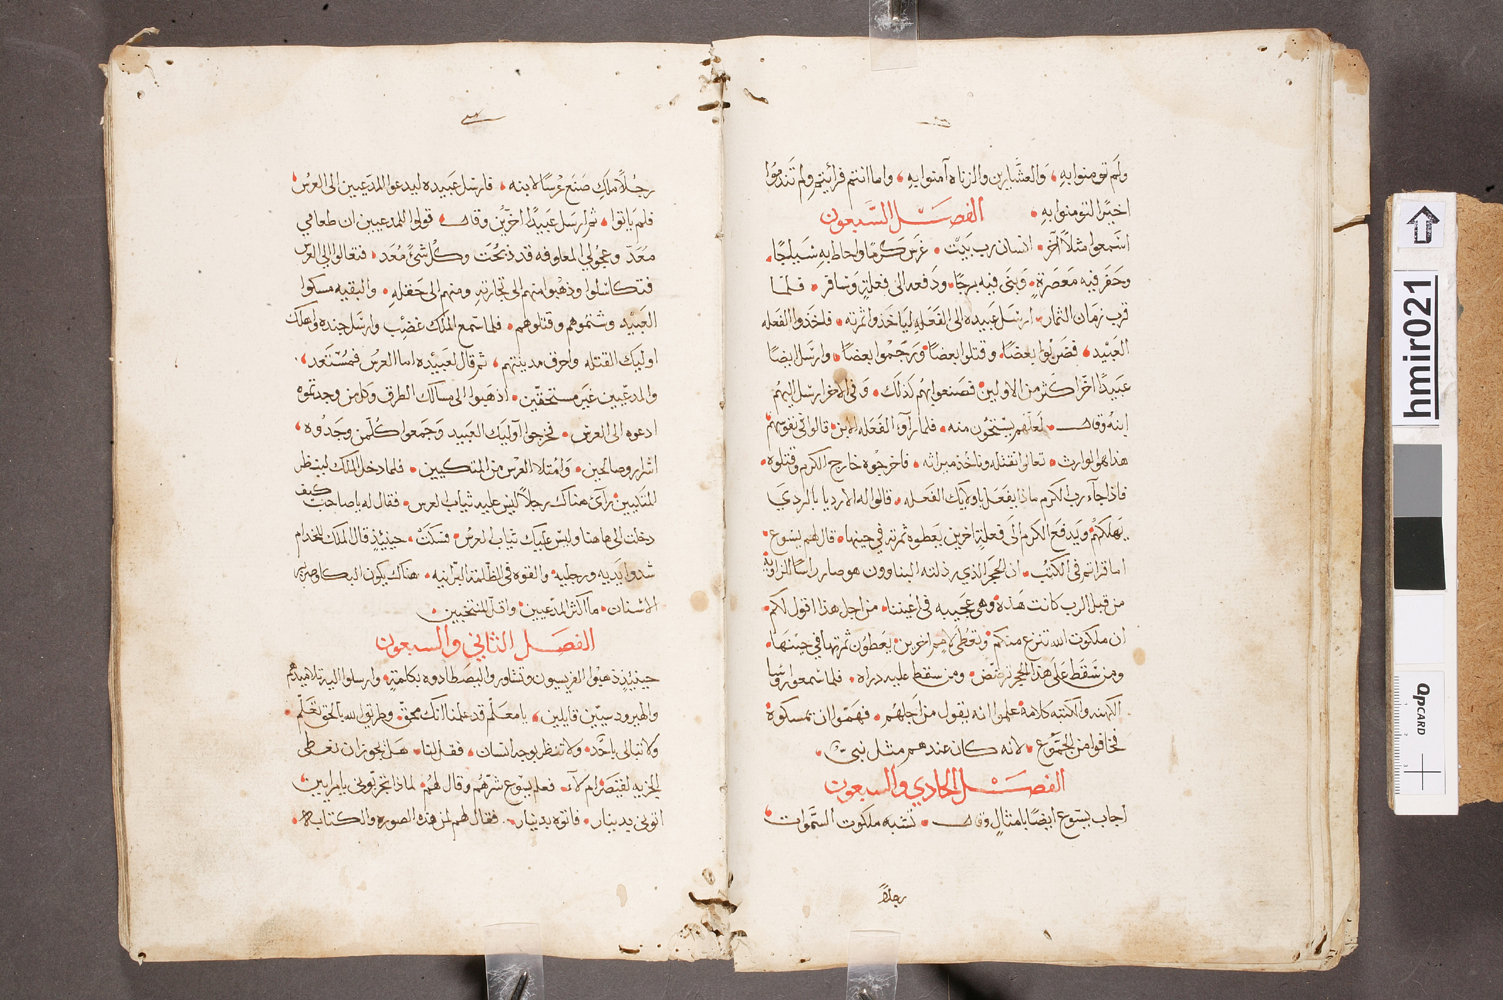 ولم تومنوا به، والعشارين والزناه آمنوا به، واما انتم فرايتم ولم تندموا
اخيرًا لتومنوا به
الفصل السبعون
اسمعوا مثلاً آخر انسان رب بيت غرس كرمًا واحاط به سياجًا
وحفر فيه معصرة وبنى فيه برجًا ودفعه الى فعلةٍ وسافر فلما
قرب زمان الثمار ارسل عبيده الى الفعلة لياخذوا ثمرته فاخذوا الفعله
العبيد فضربوا بعضًا وقتلوا بعضًا ورجموا بعضًا وارسل ايضًا
عبيدًا اخر اكثر من الاولين فصنعوا بهم كذلك وفى الاخر ارسل اليهم
ابنه وقال لعلهم يستحون منه فلما رآو الفعله الابن قالوا فى نفوسهم
هذا هو الوارث تعالوا نقتله وناخذ ميراثه فاخرجوه خارج الكرم وقتلوه
فاذا جآء رب الكرم ماذا يفعل باولايك الفعله قالوا له الارديا بالردي
يهلكهم ويدفع الكرم الى فعلةٍ اخرين يعطوه ثمرته في حينها قال لهم يسوع
اما قراتم فى الكتب ان الحجر الذي رذلته البناوون هو صار راسًا للزاويه
من قبل الرب كانت هذه وهى عجيبه فى اعيننا من اجل هذا اقول لكم
ان ملكوت الله تنزع منكم وتعطى لامم اخرين يعطون ثمرتها في حينها
ومن سقط على هذا الحجر ترضض ومن سقط عليه دراه فلما سمعوا روسا
الكهنه والكتبه كلامه علموا انه يقول من اجلهم فهموا ان يمسكوه
فخافوا من الجموع لانه كان عندهم مثل نبي
الفصل الحادي والسبعون
اجاب يسوع ايضًا بامثالٍ وقال تشبه ملكوت السموات
رجلاً
رجلاً ملكِ صنع عرسًا لابنه، فارسل عبيده ليدعوا المدعيين الى العرس
فلم ياتوا، ثم ارسل عبيدًا اخرين وقال قولوا المدعيين ان طعامي
معد وعجولي المعلوفه قد ذبحت وكل شئ معد، فتعالوا الى العرس
فتكاسلوا وذهبوا منهم الى تجارته ومنهم الى حقله والبقيه مسكوا
العبيد وشتموهم وقتلوهم فلما سمع الملك غضب وارسل جنده واهلك
اوليك القتله واحرق مدينتهم، ثم قال لعبيده اما العرس فمستعد،
والمدعيين غير مستحقين اذهبوا الى مسالك الطرق وكل من وجدتموه
ادعوه الى العرس فخرجوا اوليك العبيد وجمعوا كلّ من وجدوه،
اشرار وصالحين وامتلا العرس من المتكيين فلما دخل الملك لينظر
المتكيين رآى هناك رجلاً ليس عليه ثياب العرس فقال له يا صاحب كيف
دخلت الى هاهنا وليس عليك ثياب العرس فسكت، حينيذٍ قال الملك للخدام
شدوا يديه ورجليه والقوه فى الظلمة البرانيه هناك يكون البكا وصرير
الاسنان ما اكثر المدعيين واقل المنتخبين
الفصل الثاني والسبعون
حينيذٍ ذهبوا الفريسيون وتشاوروا ليصطادوه بكلمةٍ وارسلوا اليه تلاميذهم
والهيرودسيين قايلين، يا معلم قد علمنا انك محق وطريق الله بالحق تعلم
ولا تبالى باحد ولا تنظر بوجه انسان، فقل لنا، هل يجوز ان نعطى
الجزيه لقيصر ام لا، فعلم يسوع شرهم وقال لهم لماذا تجربوني يا مرايين،
اتوني بدينار فاتوه بدينار، فقال لهم لمن هذه الصوره والكتابه